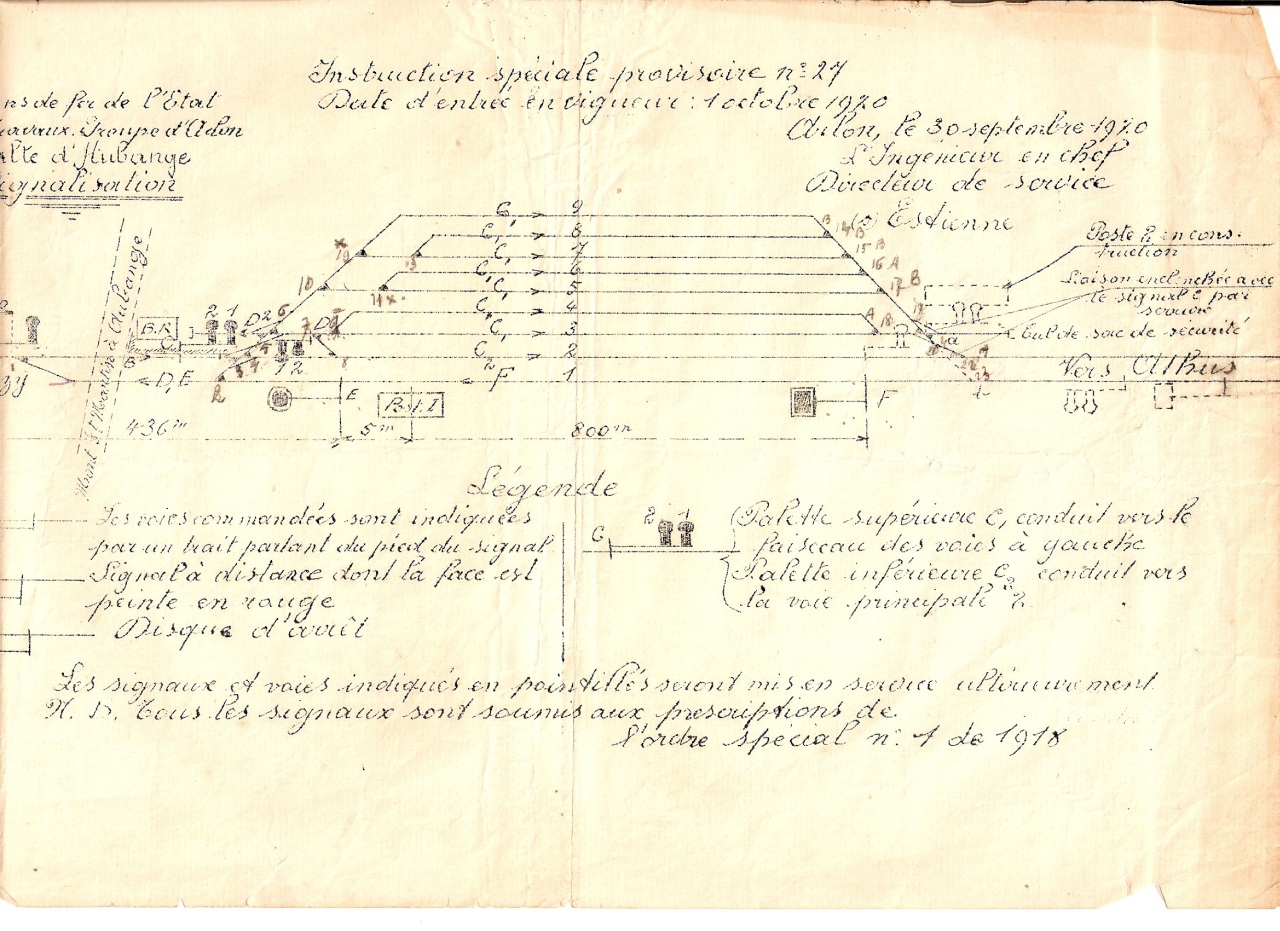 Instruction spéciale provisoire n° 27
Date d'entrée en vigueur : 1 octobre 1920
ns de fer de l'Etat
ravaux. Groupe d'Arlon
alte d'Aubange
ignalisation
Arlon, le 30 septembre 1920
L'Ingénieur en chef
Directeur de service
(s) Estienne
Poste P. en cons-
truction
Liaison enclenchée avec
le signal C par
serrure
Cul de sac de sécurité
Vers Athus
Mont St Martin à Aubange
C, > 9
C, > 8
C, > 7
C, > 6
C, > 5
C, > 4
C, > 3
C2 > 2
= F 1
= D, E
B.R
2 1
D 2 6
10
19
13
11
1 2
B 14 B
15 B
16 A
17 B
A 18
E
B.t I
F
436 m
5 m
800 m
Légende
Les voies commandées sont indiquées
par un trait partant du pied du signal
Signal à distance dont la face est
peinte en rouge
Disque d'arrêt
C 2 1
Palette supérieure C, conduit vers le
faisceau des voies à gauche
Palette inférieure C2 conduit vers
la voie principale n° 2.
Les signaux et voies indiqués en pointillés seront mis en service ultérieurement
N. B. Tous les signaux sont soumis aux prescriptions de
l'ordre spécial n° 1 de 1918